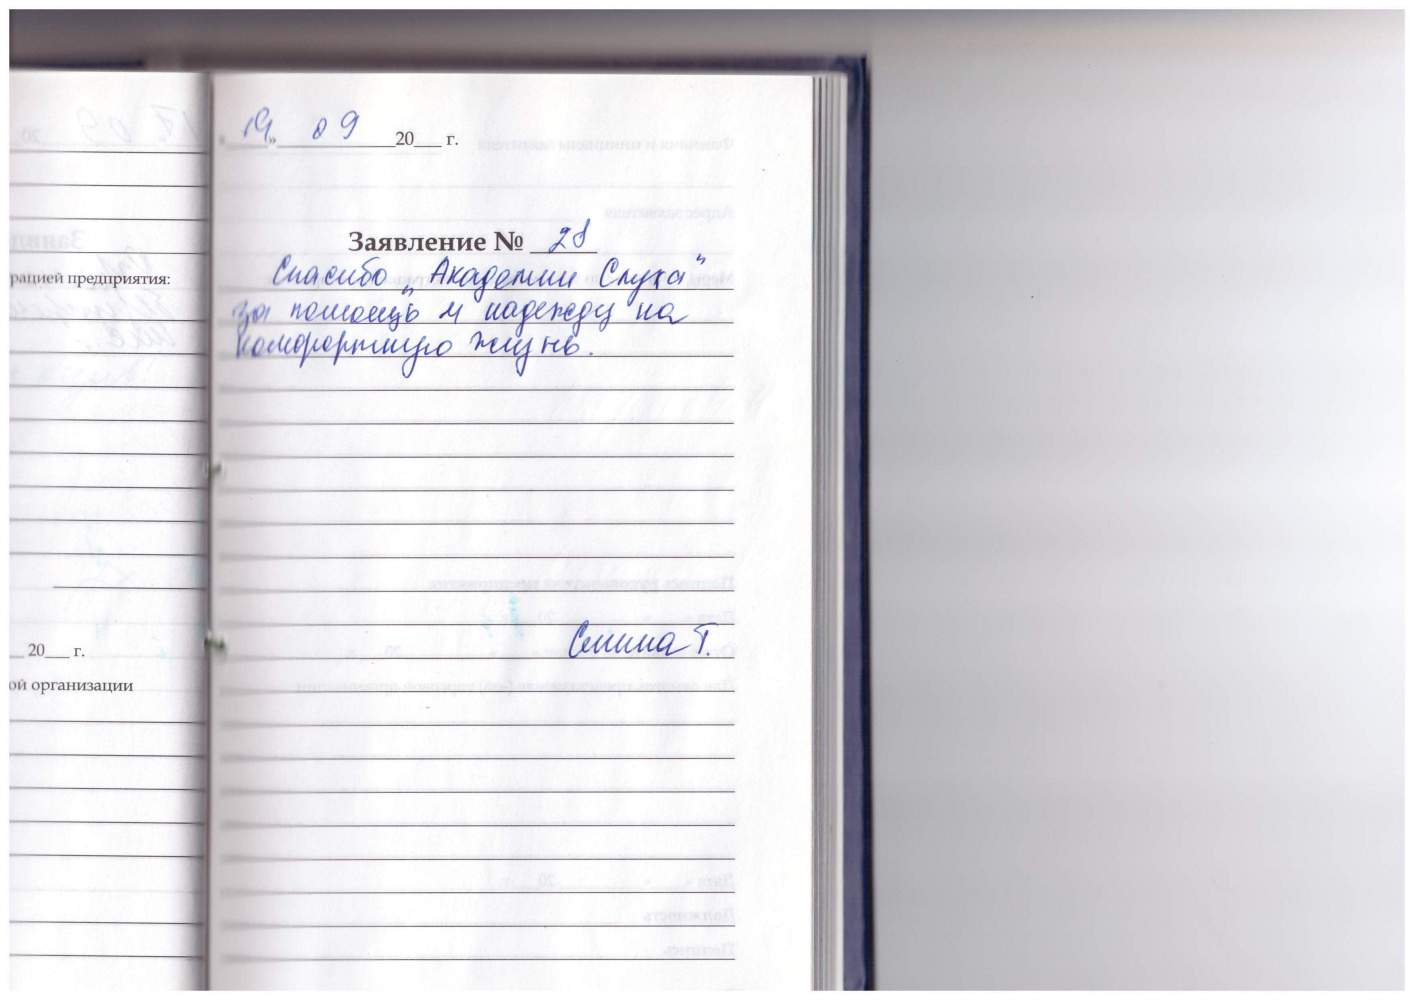 «19» 09 20 г.
Заявление № 28
Спасибо „Академии Слуха"
за помощь и надежду на
комфортную жизнь.
Семина Т.
рацией предприятия:
20 г.
ой организации